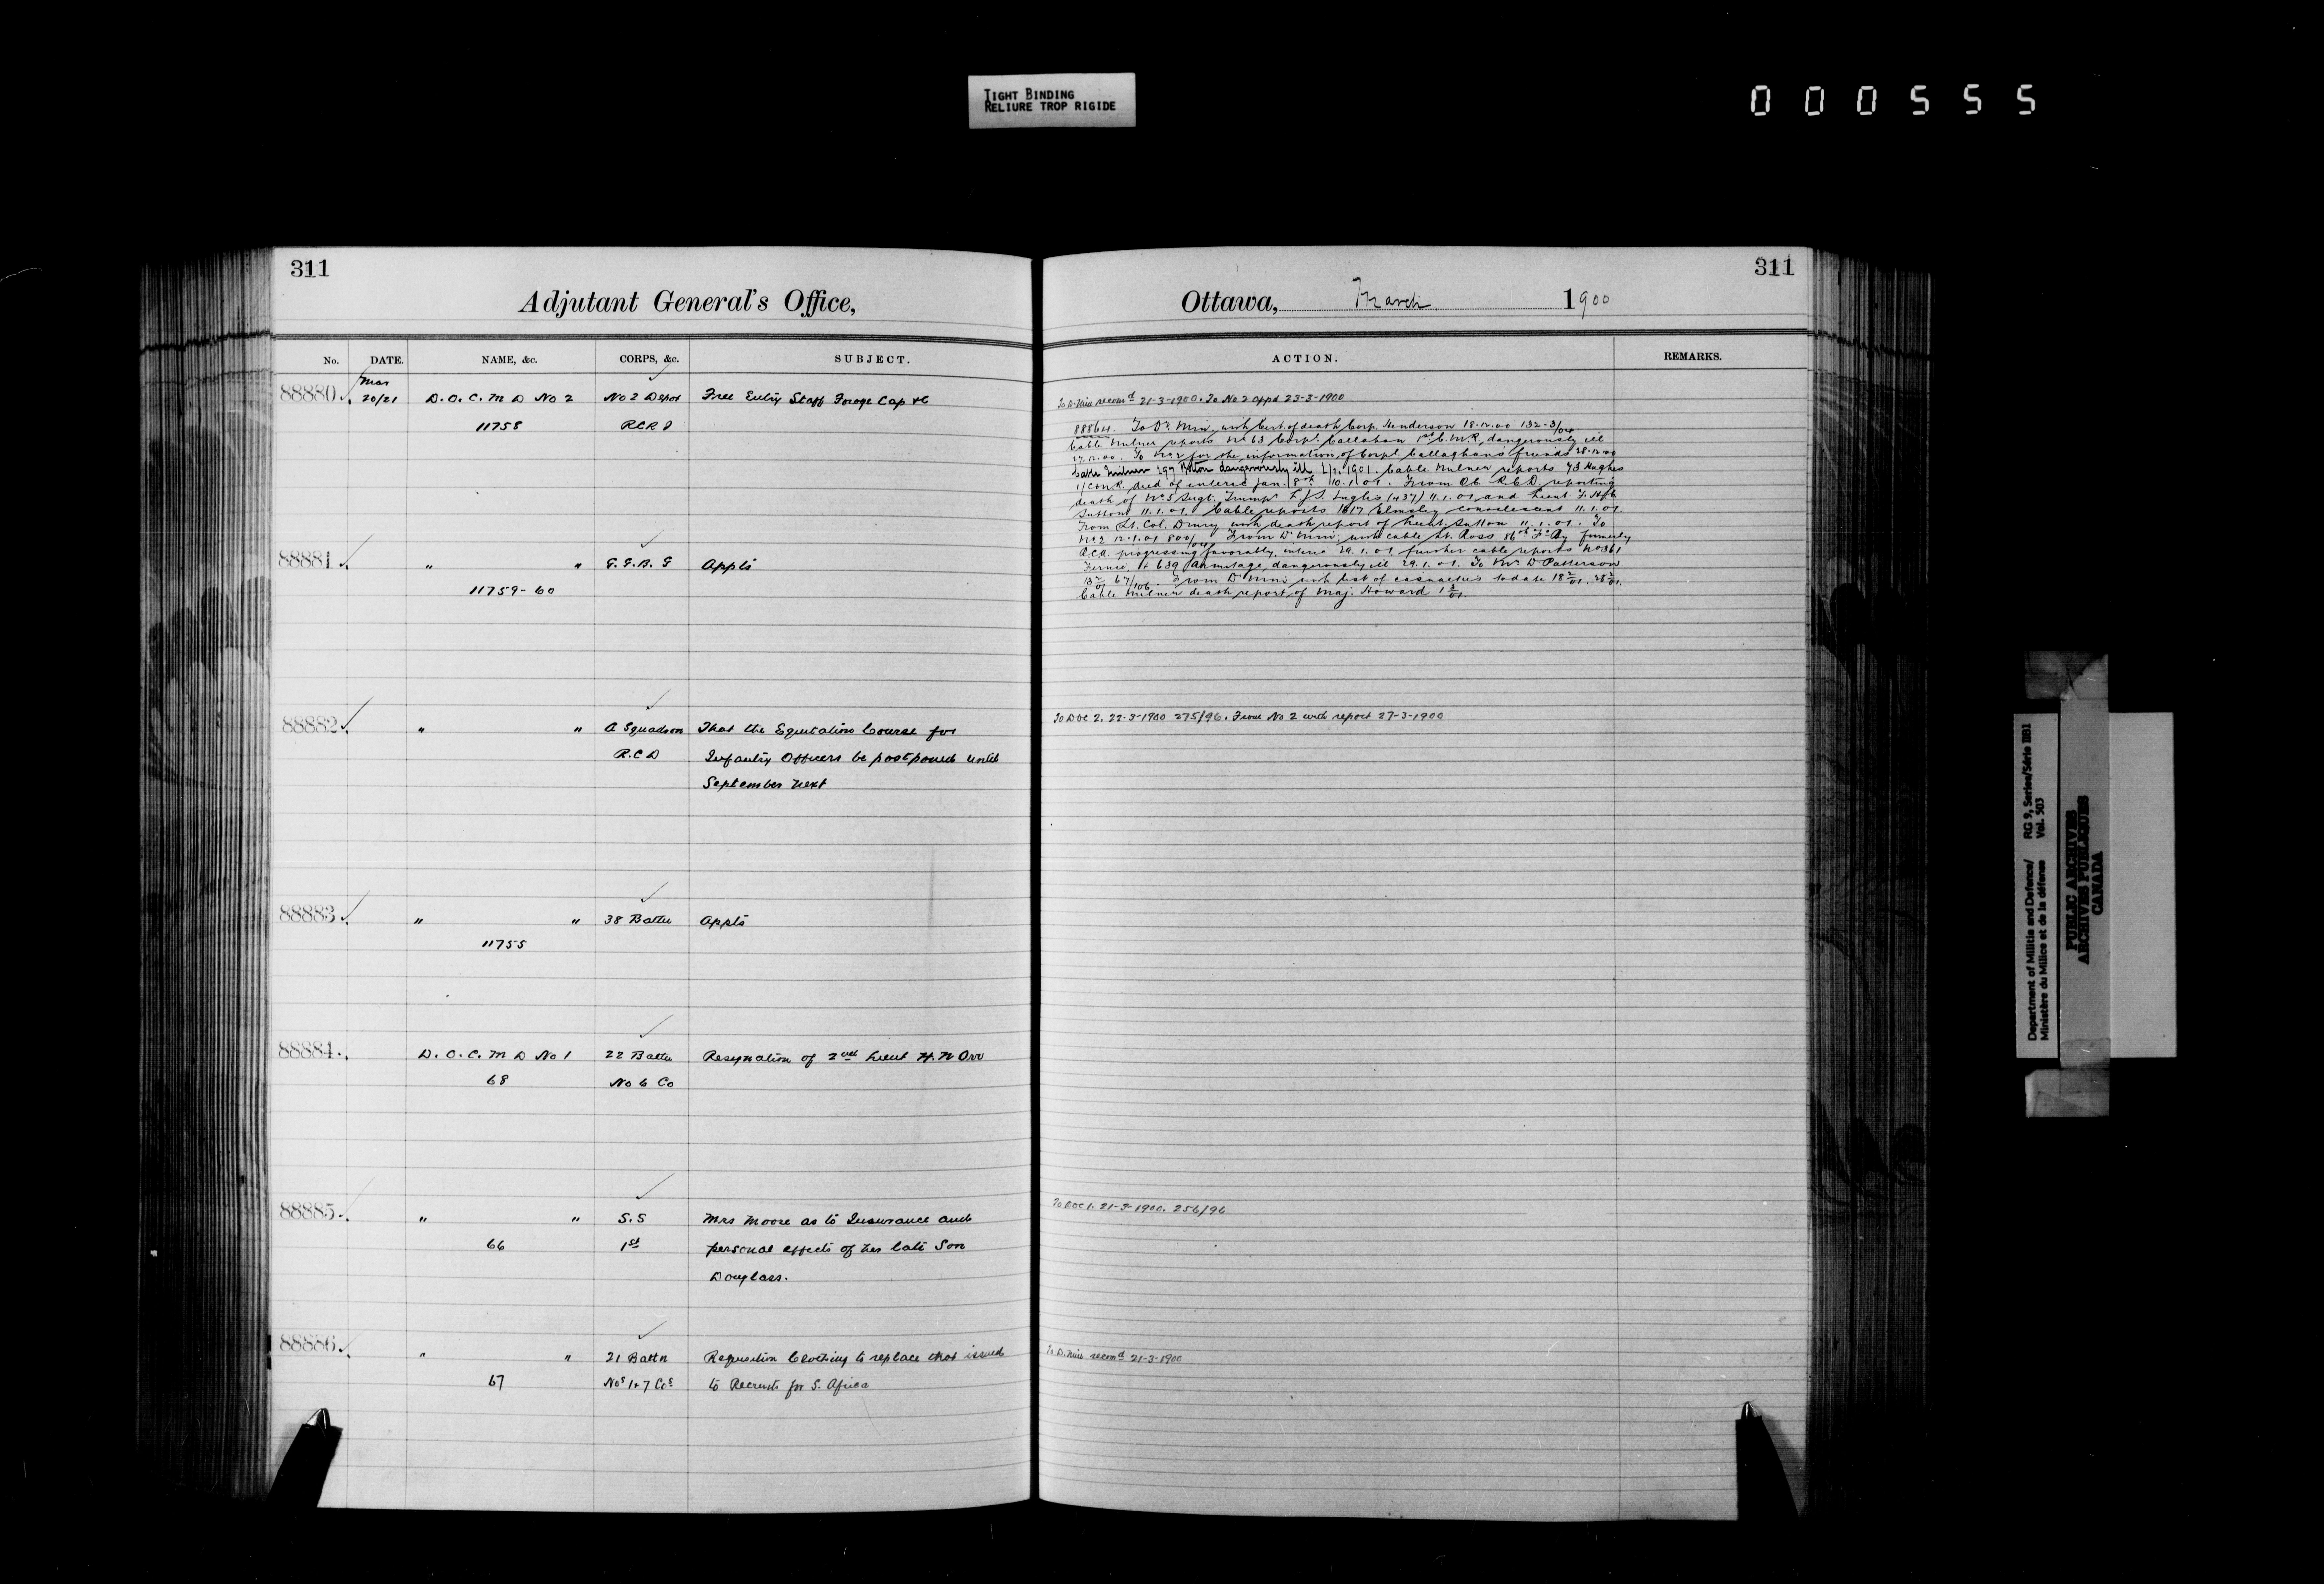 TIGHT BINDING
RELIURE TROP RIGIDE
000555
311
Adjutant General's Office,
No. DATE. NAME, &c. CORPS, &c. SUBJECT.
88880 Mar 20/21 D.O.C. M D No 2 No 2 Depot Free Entry Staff Forage Cap &c
11758 RCRI
88881 " " G.G.B.G Appts
11759-60
88882 " " A Squadron That the Equitation Course for
R.C.D Infantry Officers be postponed until
September next
88883 " " 38 Battn Appts
11755
88884 D.O.C. M D No 1 22 Battn Resignation of 2nd Lieut H. N Orr
68 No 6 Co
88885 " " S.S Mrs Moore as to Insurance and
66 1st personal effects of her late Son
Douglass.
88886 " " 21 Battn Requisition Clothing to replace that issued
67 Nos 1+7 Cos to Recruits for S. Africa
311
Ottawa, March 1900
ACTION. REMARKS.
To D. Min recomd 21-3-1900. To No 2 appd 23-3-1900
88864. To Dr. Min, with Cert. of death Corp. Henderson 18.12.00 132-3/04
Cable Milner reports No 63 Corpl. Callahan 1st C.M.R. dangerously ill
27.12.00. To No 2 for the information of Corpl Callaghan's friends 28.12.00
Cable Milner 297 dangerously ill 4/1.1901. Cable Milner reports 73 Hughes
1/C.M.R. died of enteric Jan. 8th 10.1.01. From R.C.D reporting
death of No 5 Sergt. Trump. Inglis (437) 11.1.01 and Lieut
Sutton 11.1.01. Cable reports 1617 Elmsley convalescent 11.1.01.
From Lt. Col. Drury with death report of Lieut. Sutton 11.1.01. To
No 2 12.1.01 800/ From Dr Min. with cable Lt. Ross 16th formerly
R.C.A. progressing favorably, enteric 29.1.01. further cable reports No 361
Fernie, + 639 Armitage, dangerously ill 29.1.01. To Mr. D Patterson
13 2/01 67/106. From Dr Min. with list of casualties to date 18 2/01. 28 2/01.
Cable Milner death report of Maj. Howard 1 3/01.
To DOC 2. 22-3-1900 275/96. From No 2 with report 27-3-1900
To DOC 1. 21-3-1900. 256/96
To D. Min recomd 21-3-1900
Department of Militia and Defence/ RG 9, Series/Série IIB1
Ministère du Milice et de la défense Vol. 503
PUBLIC ARCHIVES
ARCHIVES PUBLIQUES
CANADA